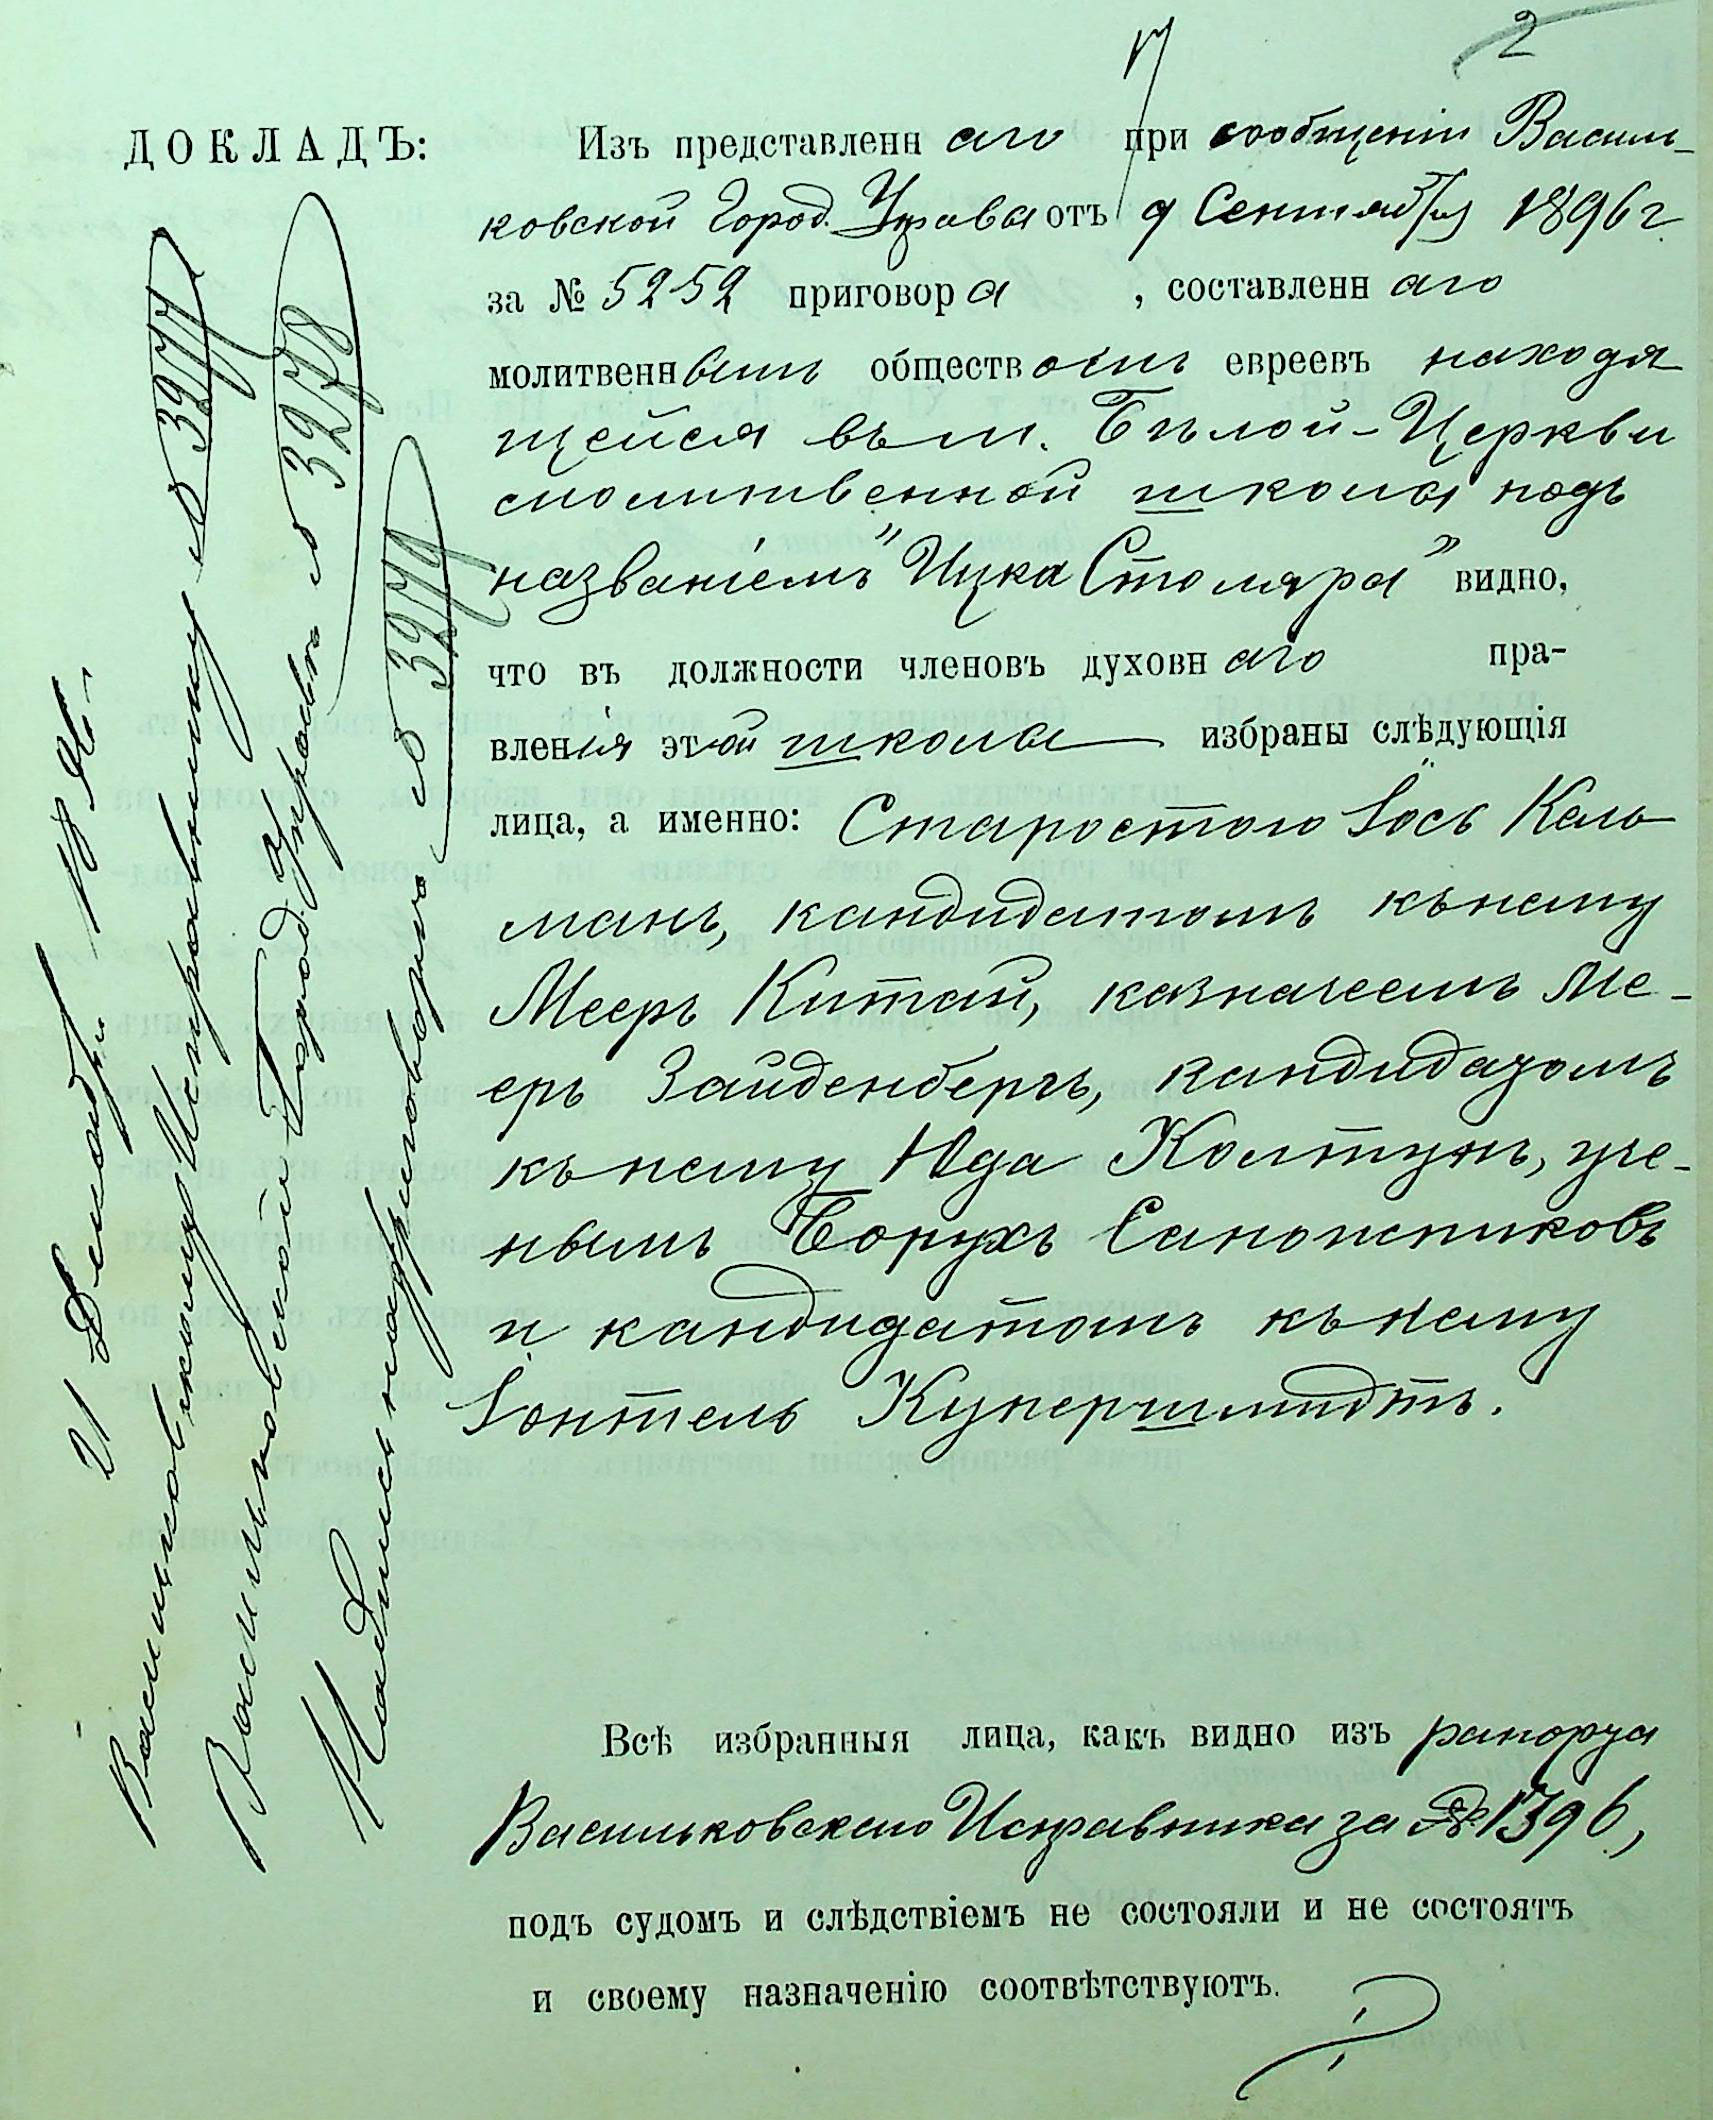 2
ДОКЛАДЪ:
Изъ представленнаго при сообщеніи Василь-
ковской Город. Управы отъ 9 Сентября 1896 г.
за № 5252 приговора, составленнаго
молитвеннымъ обществомъ евреевъ находя
щейся въ м. Бѣлой-Церкви
молитвенной школы подъ
названіемъ "Ицка Столяра" видно,
что въ должности членовъ духовнаго пра-
вленія этой школы избраны слѣдующія
лица, а именно: Старостою Іось Кель
манъ, кандидатомъ къ нему
Мееръ Китай, казначеемъ Ме-
еръ Зайденбергъ, кандидатомъ
къ нему Юда Колтунъ, уче-
нымъ Борухъ Сапожниковъ
и кандидатомъ къ нему
Іонтель Купершмидтъ.
Всѣ избранныя лица, какъ видно изъ рапорта
Васильковскаго Исправника за № 1396,
подъ судомъ и слѣдствіемъ не состояли и не состоятъ
и своему назначенію соотвѣтствуютъ.
21 Декабр. 1896
Васильковскому Исправнику № 3277
Васильковской Город. Управѣ № 3278
№ 3279